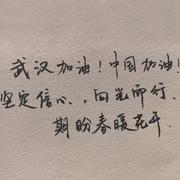 武汉加油！中国加油！
坚定信心，向光而行．
期盼春暖花开．